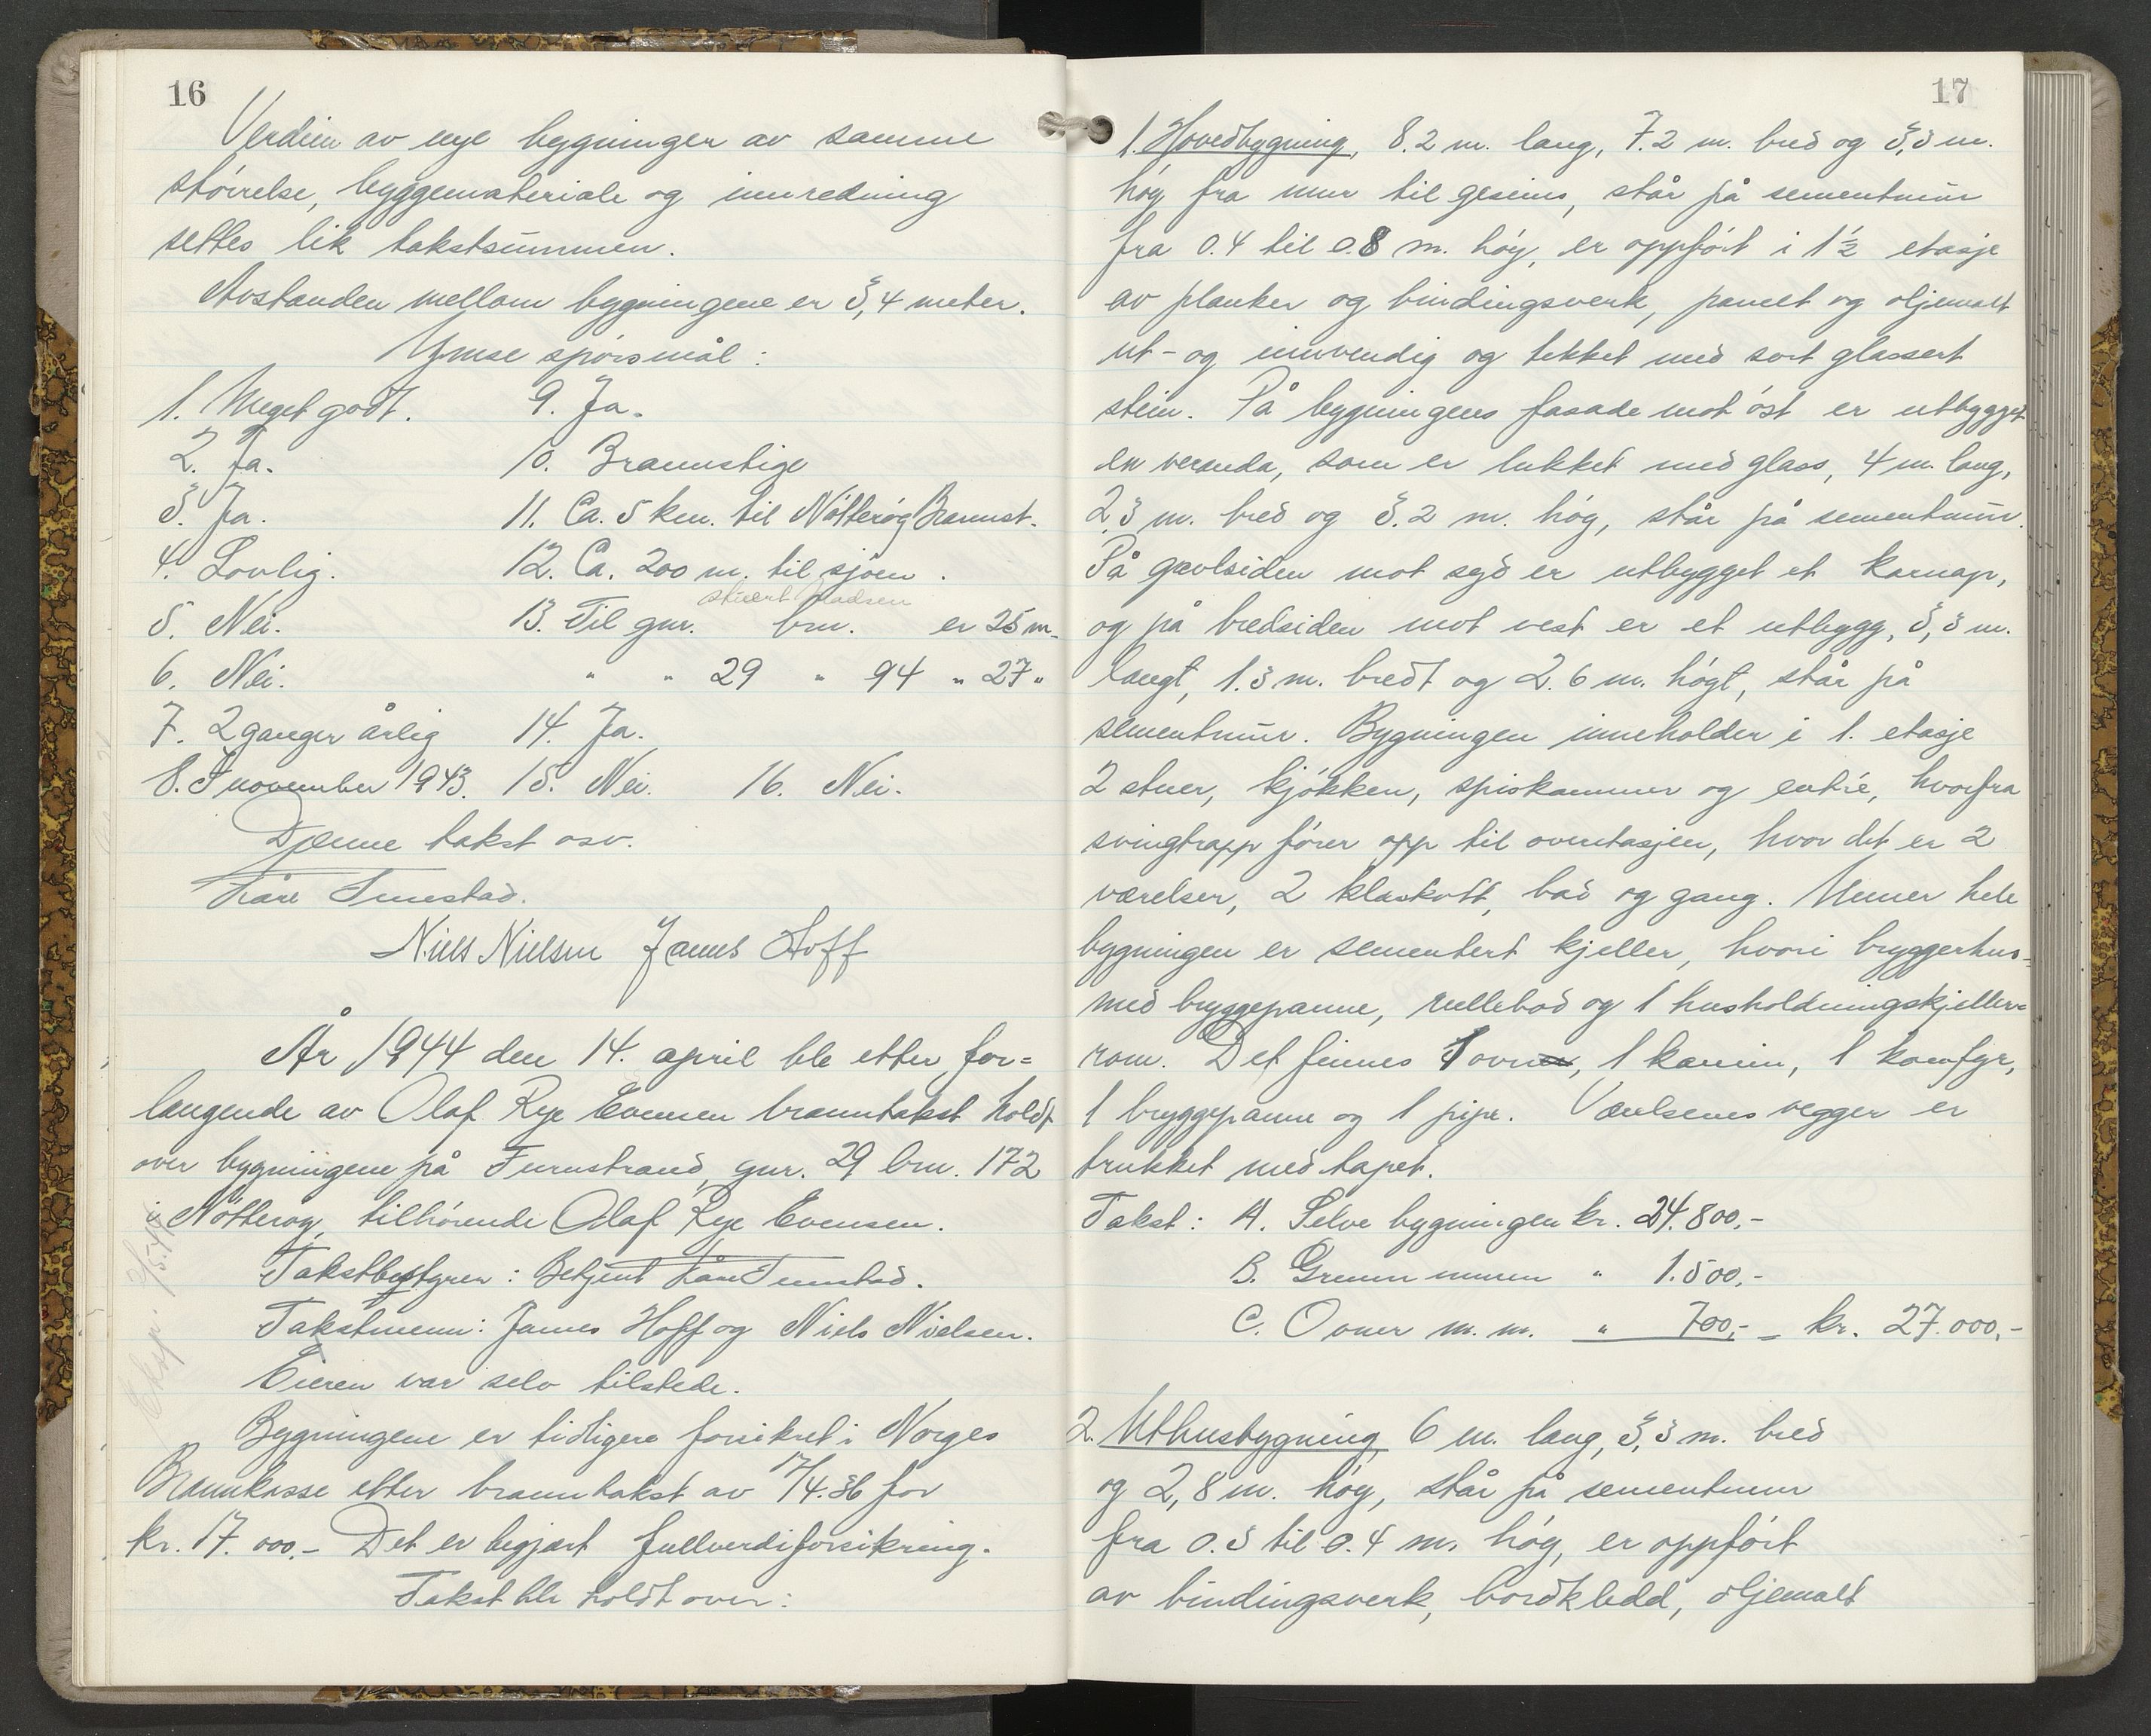 16
Verdien av nye bygninger av samme
størrelse, byggemateriale og innredning
settes lik takstsummen.
Avstanden mellom bygningene er 3,4 meter.
Ymse spørsmål:
1. Meget godt. 9. Ja.
2. Ja. 10. Brannstige
3. Ja. 11. Ca. 5 km. til Nøtterøy Brannst.
4. Lovlig. 12. Ca. 200 m. til sjøen.
5. Nei. 13. Til gnr. brn. er 25 m.
6. Nei. " " 29 " 94 " 27 "
7. 2 ganger årlig 14. Ja.
8. I november 1943. 15. Nei. 16. Nei.
Denne takst osv.
Kåre Tmestad.
Niels Nielsen James Hoff
År 1944 den 14. april ble etter for=
langende av Olaf Rye Evensen branntakst holdt
over bygningene på Furustrand, gnr. 29 brn. 172
i Nøtterøy, tilhørende Olaf Rye Evensen.
Takstbestyrer: Betjent Kåre Tmestad.
Takstmenn: James Hoff og Niels Nielsen.
Eieren var selv tilstede.
Bygningene er tidligere forsikret i Norges
Brannkasse etter branntakst av 17/4.36 for
kr. 17.000.- Det er begjært fullverdiforsikring.
Takst ble holdt over:
17
1. Hovedbygning, 8.2 m. lang, 7.2 m. bred og 3,3 m.
høy fra mur til gesims, står på sementmur
fra 0.4 til 0.8 m. høy, er oppført i 1½ etasje
av planker og bindingsverk, panelt og oljemalt
ut- og innvendig og tekket med sort glassert
stein. På bygningens fasade mot øst er utbygget
en veranda, som er lukket med glass, 4 m. lang,
2,3 m. bred og 3.2 m. høy, står på sementmur.
På gavlsiden mot syd er utbygget et karnap,
og på bredsiden mot vest er et utbygg, 3,3 m.
langt, 1.3 m. bredt og 2.6 m. høgt, står på
sementmur. Bygningen inneholder i 1. etasje
2 stuer, kjøkken, spiskammer og entré, hvorfra
svingtrapp fører opp til overetasjen, hvor det er 2
værelser, 2 kleskott, bad og gang. Under hele
bygningen er sementert kjeller, hvori bryggerhus=
med bryggepanne, rullebod og 1 husholdningskjeller=
rom. Det finnes 1 ovn, 1 kamin, 1 komfyr,
1 bryggepanne og 1 pipe. Værelsenes vegger er
trukket med tapet.
Takst: A. Selve bygningen kr. 24.800,-
B. Grunnmuren " 1.500,-
C. Ovner m.m. " 700,- = kr. 27.000,-
2. Uthusbygning, 6 m. lang, 3,3 m. bred
og 2,8 m. høy, står på sementmur
fra 0.3 til 0.4 m. høy, er oppført
av bindingsverk, bordkledd, oljemalt